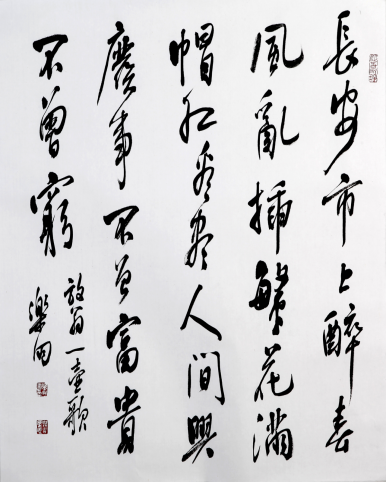 長安市上醉春
風亂插繁花滿
帽紅看盡人間興
廢事不曾富貴
不曾窮
放翁一壺歌
樂田